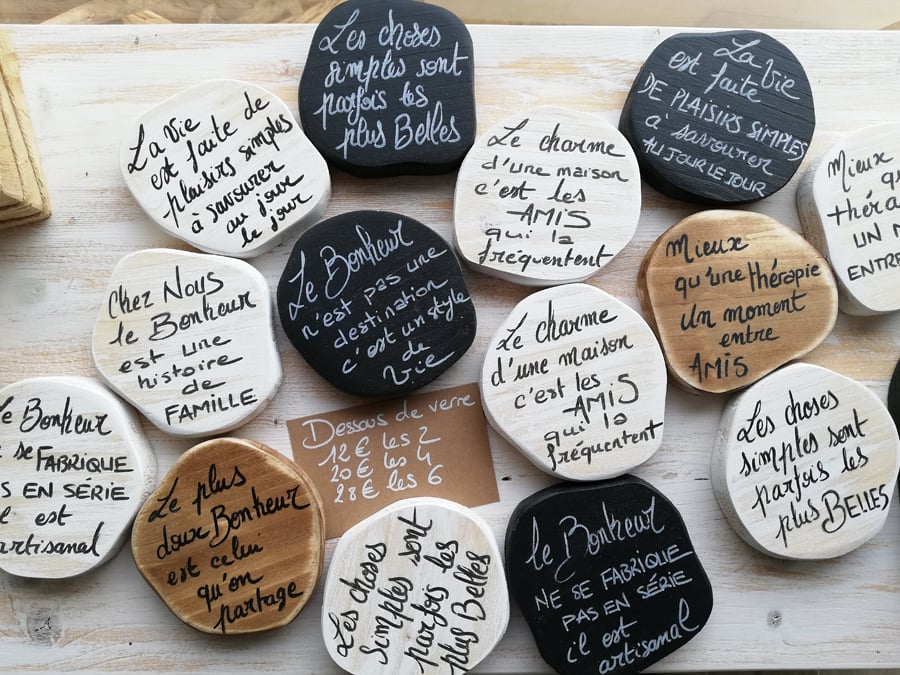 Les choses
simples sont
parfois les
plus Belles
La Vie
est faite
DE PLAISIRS SIMPLES
à savourer
AU JOUR LE JOUR
La Vie
est faite de
plaisirs simples
à savourer
au jour
le jour
Le charme
d'une maison
c'est les
AMIS
qui la
fréquentent
Mieux
thér
UN M
ENTRE
Le Bonheur
n'est pas une
destination
c'est un style
de
Vie
Mieux
qu'une thérapie
Un moment
entre
AMIS
Chez Nous
le Bonheur
est une
histoire
de
FAMILLE
Le charme
d'une maison
c'est les
AMIS
qui la
fréquentent
Les choses
simples sont
parfois les
plus BELLES
e Bonheur
se FABRIQUE
S EN SÉRIE
l est
artisanal
Dessous de verre
12€ les 2
20€ les 4
28€ les 6
Le plus
doux Bonheur
est celui
qu'on
partage
Les choses
Simples sont
parfois les
plus Belles
le Bonheur
NE SE FABRIQUE
PAS EN SÉRIE
il est
artisanal